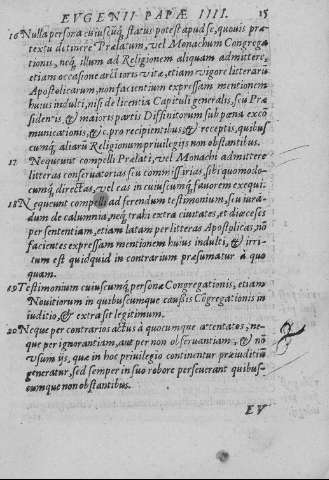 EVGENII PAPÆ IIII. 15
16 Nulla persona cuiuscunq; status potest apud se, quouis præ
textu detinere Prælatum, vel Monachum Congrega
tionis, neq; illum ad Religionem aliquam admittere,
etiam occasione arctioris vitæ, etiam vigore litterarū
Apostolicarum, non facientium expressam mentionem
huius indulti, nisi de licentia Capituli generalis, seu Præ
sidentis, & maioris partis Diffinitorum sub pœna excō
municationis, &c. pro recipientibus, & receptis, quibus
cumq; aliarū Religionum priuilegijs non obstantibus.
17 Nequeunt compelli Prælati, vel Monachi admittere
litteras conseruatorias seu commissarias, sibi quomodo-
cumq; directas, vel eas in cuiuscumq; fauorem exequi.
18 Nequeunt compelli ad ferendum testimonium, seu iura-
dum de calumnia, neq; trahi extra ciuitates, et diœceses
per sententiam, etiam latam per litteras Apostolicas, nō
facientes expressam mentionem huius indulti, & irri-
tum est quidquid in contrarium præsumatur à quo
quam.
19 Testimonium cuiuscumq; personæ Congregationis, etiam
Nouitiorum in quibuscumque caussis Cōgregationis in
iuditio, & extra sit legitimum.
20 Neque per contrarios actus à quocumque attentatos, ne-
que per ignorantiam, aut per non obseruantiam, & nō
vsum ijs, quæ in hoc priuilegio continentur præiuditiū
generatur, sed semper in suo robore perseuerant quibus-
cumque non obstantibus.
EV